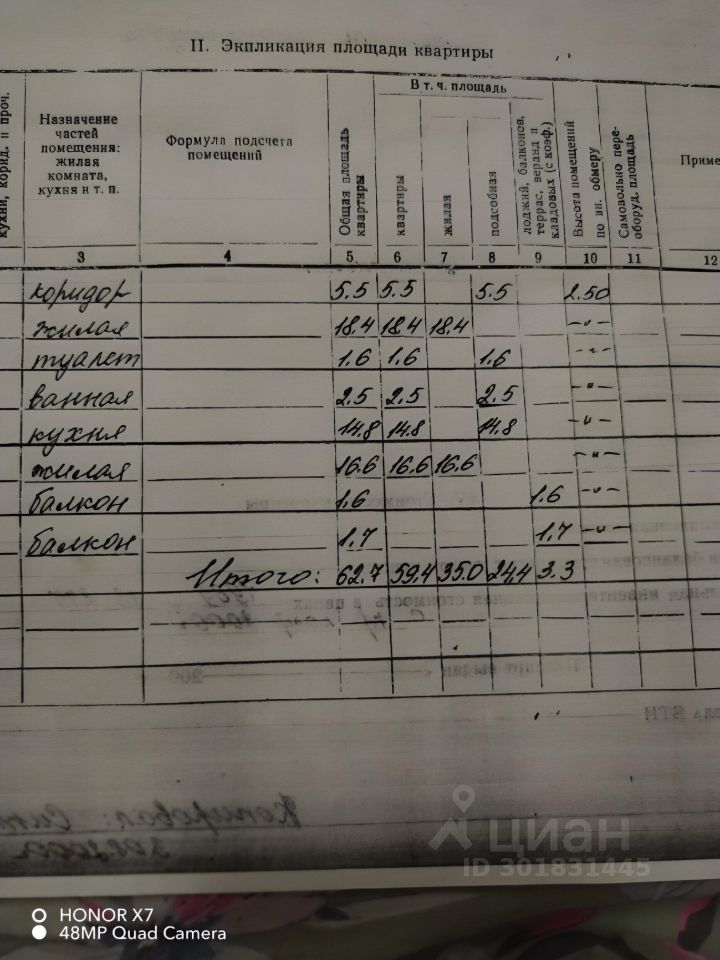 II. Экпликация площади квартиры
кухни, корид. и проч.
Назначение
частей
помещения:
жилая
комната,
кухня и т. п.
Формула подсчета
помещений
Общая площадь
квартиры
В т. ч. площадь
квартиры
жилая
подсобная
лоджий, балконов,
террас, веранд и
кладовых (с коэф.)
Высота помещений
по вн. обмеру
Самовольно пере-
оборуд. площадь
Приме
3 4 5 6 7 8 9 10 11 12
коридор 5.5 5.5 5.5 2.50
жилая 18.4 18.4 18.4 -"-
туалет 1.6 1.6 1.6 -"-
ванная 2.5 2.5 2.5 -"-
кухня 14.8 14.8 14.8 -"-
жилая 16.6 16.6 16.6 -"-
балкон 1.6 1.6 -"-
балкон 1.7 1.7 -"-
Итого: 62.7 59.4 35.0 24.4 3.3
циан
ID 301831445
HONOR X7
48MP Quad Camera